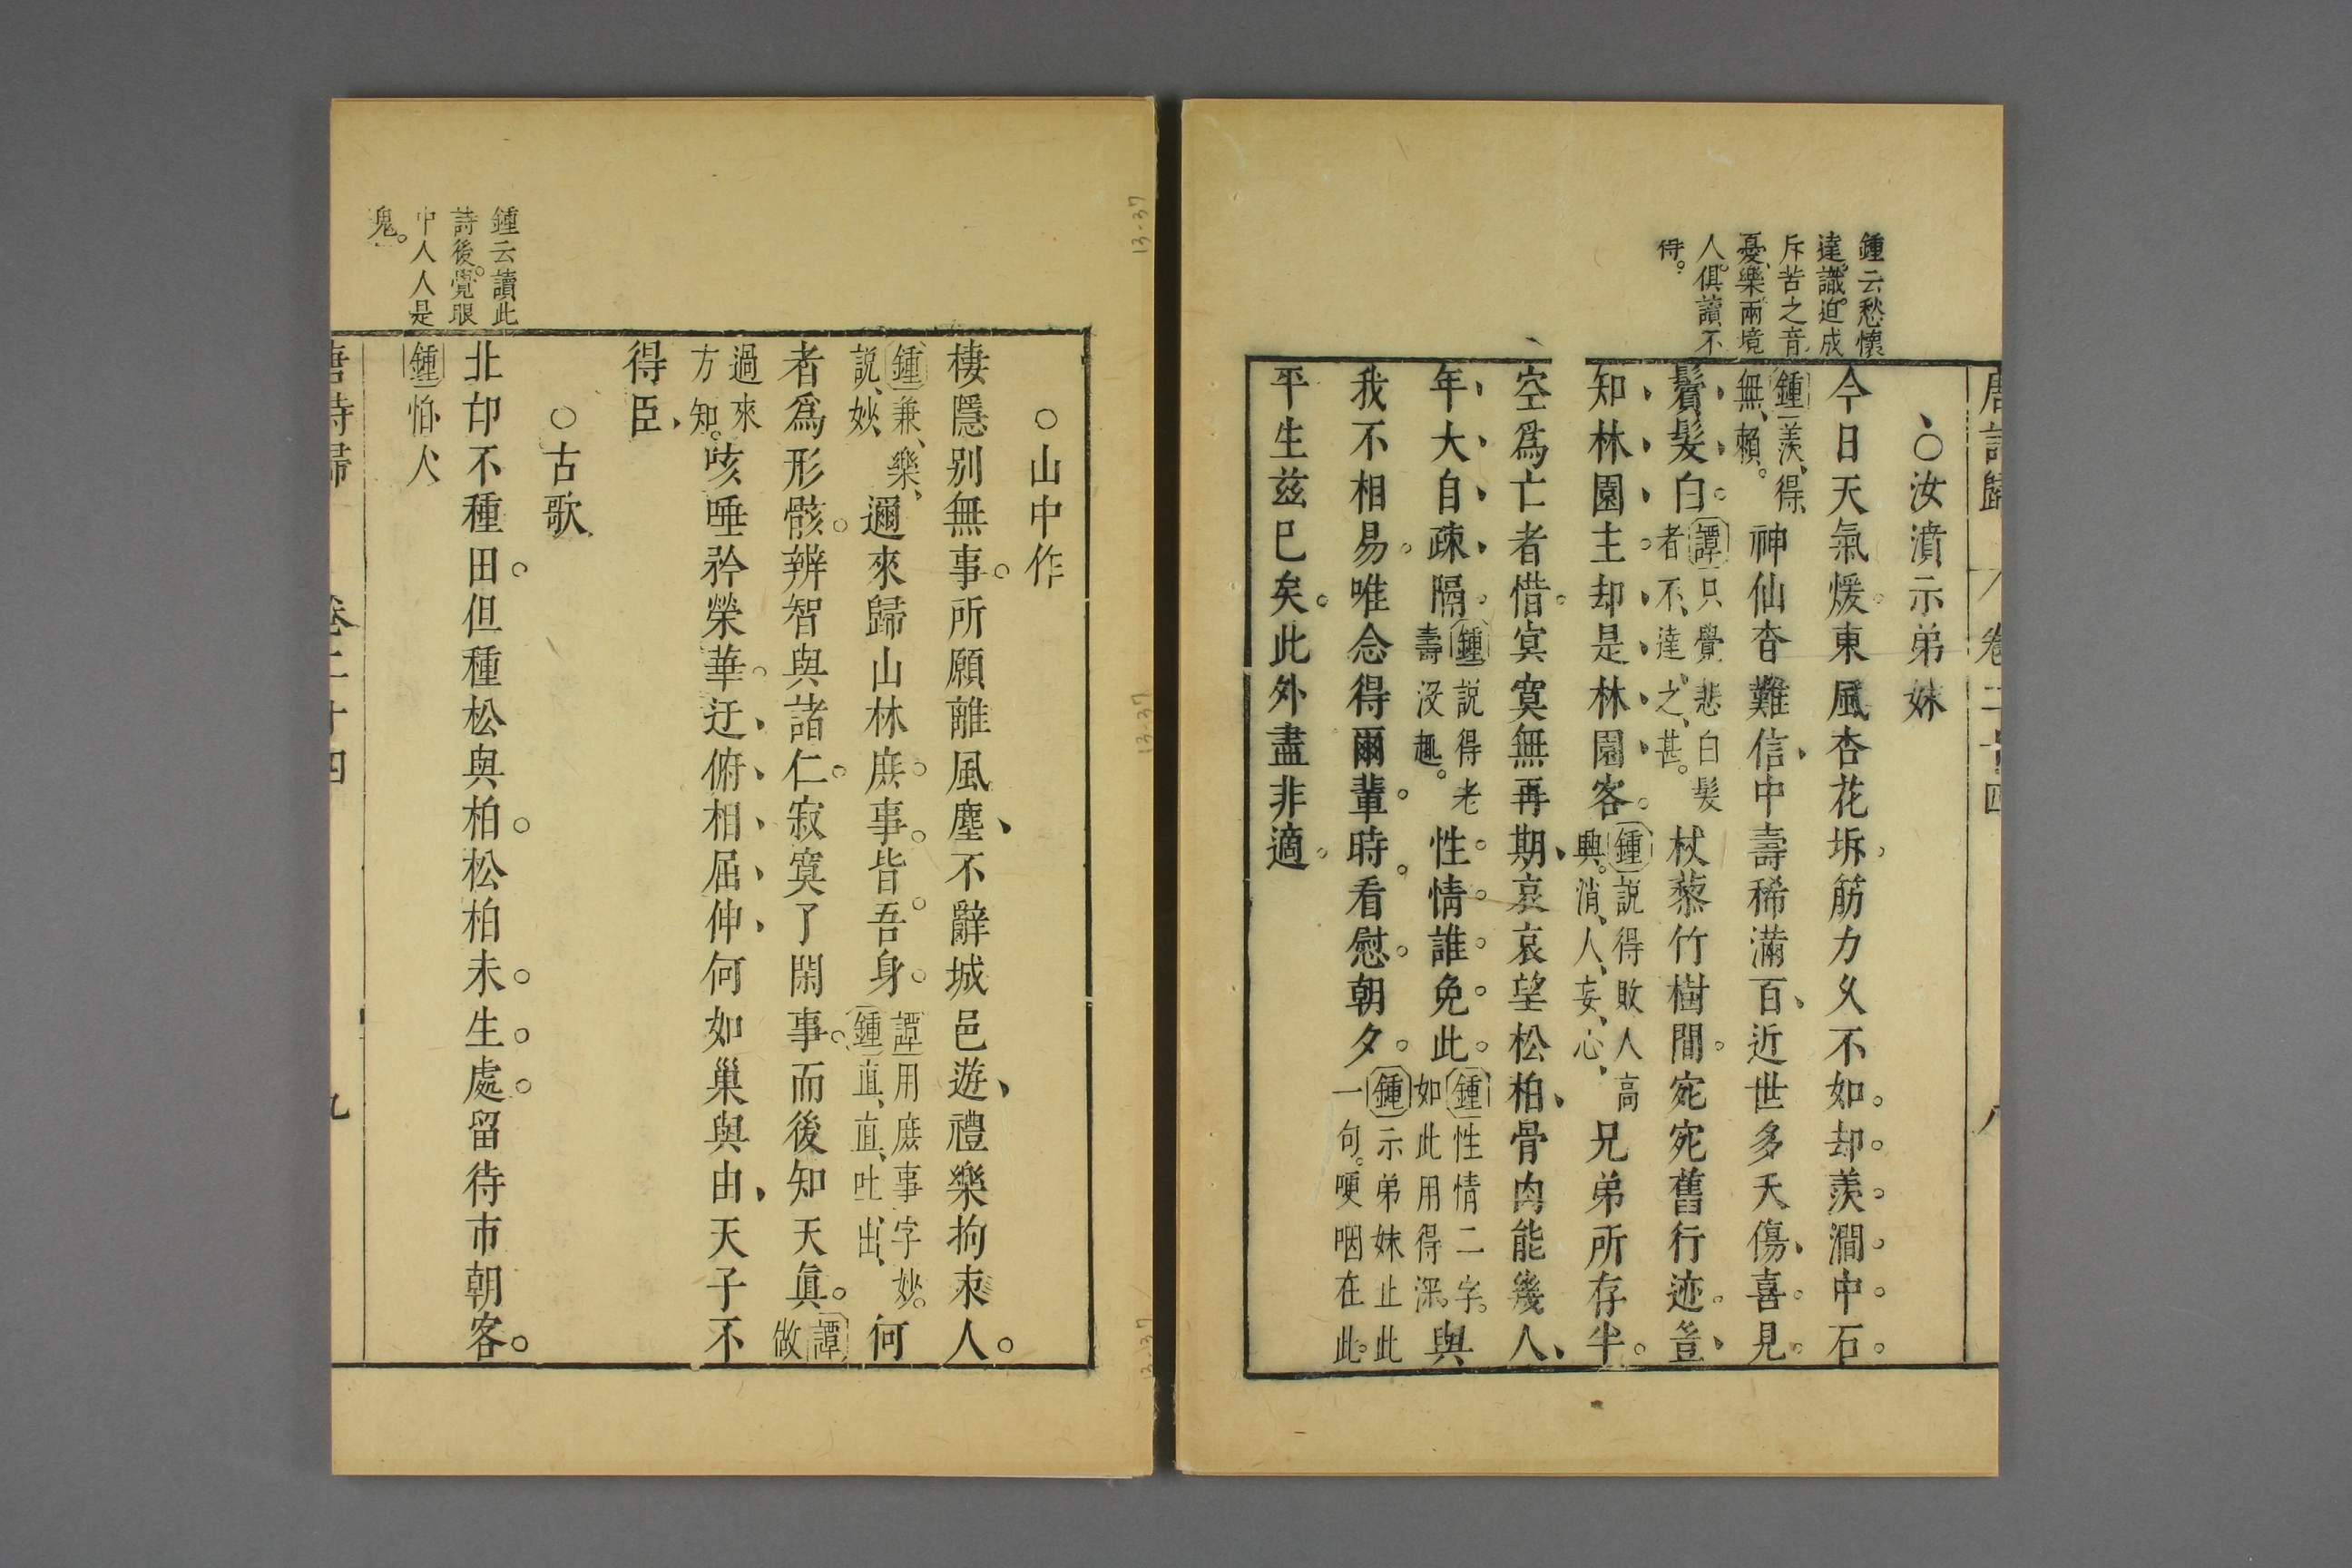 鍾云愁懷
達識迫成
斥苦之音
憂樂兩境
人俱讀不
得
唐詩歸 卷二十四 八
○汝濆示弟妹
今日天氣煖東風杏花坼筋力久不如却羨澗中石
鍾羨得
無賴
神仙杳難信中壽稀滿百近世多夭傷喜見
鬢髮白
譚只覺悲白髮
者不達之甚
杖藜竹樹間宛宛舊行迹豈
知林園主却是林園客
鍾説得敗人高
興消人妄心
兄弟所存半
空爲亡者惜㝠寞無再期哀哀望松柏骨肉能幾人
年大自疎隔
鍾説得老
壽没趣
性情誰免此
鍾性情二字
如此用得深
與
我不相易唯念得爾輩時看慰朝夕
鍾示弟妹止此
一句哽咽在此
平生茲已矣此外盡非適
13.37
13.37
13.37
○山中作
棲隱别無事所願離風塵不辭城邑遊禮樂拘朿人
鍾兼樂
説妙
邇來歸山林庶事皆吾身
譚用庶事字妙
鍾直直吐出
何
者爲形骸辨智與諸仁寂寞了閑事而後知天眞
譚
做
過來
方知
咳唾矜榮華迂俯相屈伸何如巢與由天子不
得臣
○古歌
鍾云讀此
詩後覺眼
中人人是
鬼
北邙不種田但種松與柏松柏未生處留待市朝客
鍾怕人
唐詩歸 卷二十四 九